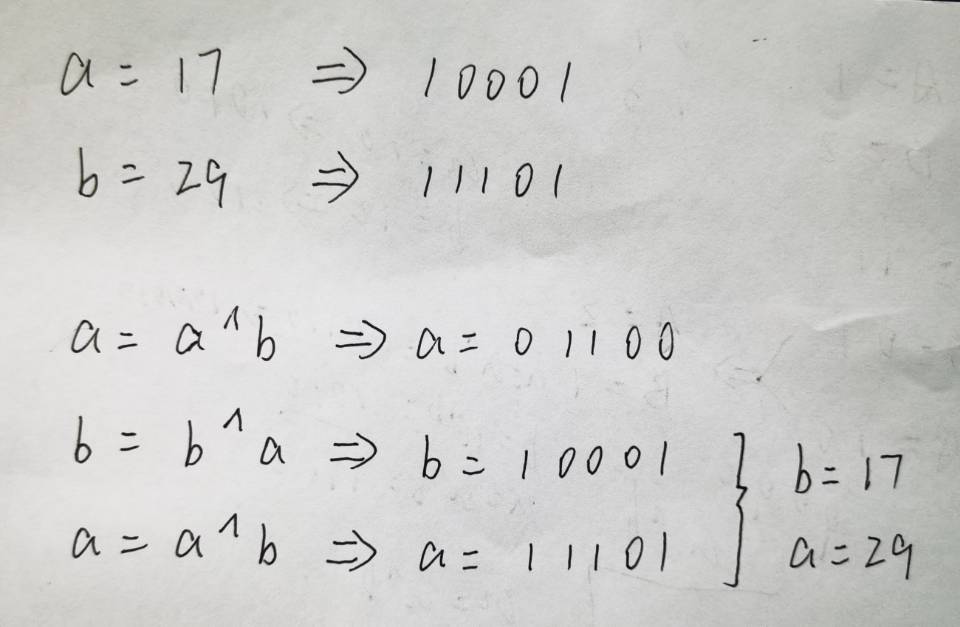 a = 17 ⇒ 10001
b = 29 ⇒ 11101
a = a ^ b ⇒ a = 01100
b = b ^ a ⇒ b = 10001 } b = 17
a = a ^ b ⇒ a = 11101 } a = 29